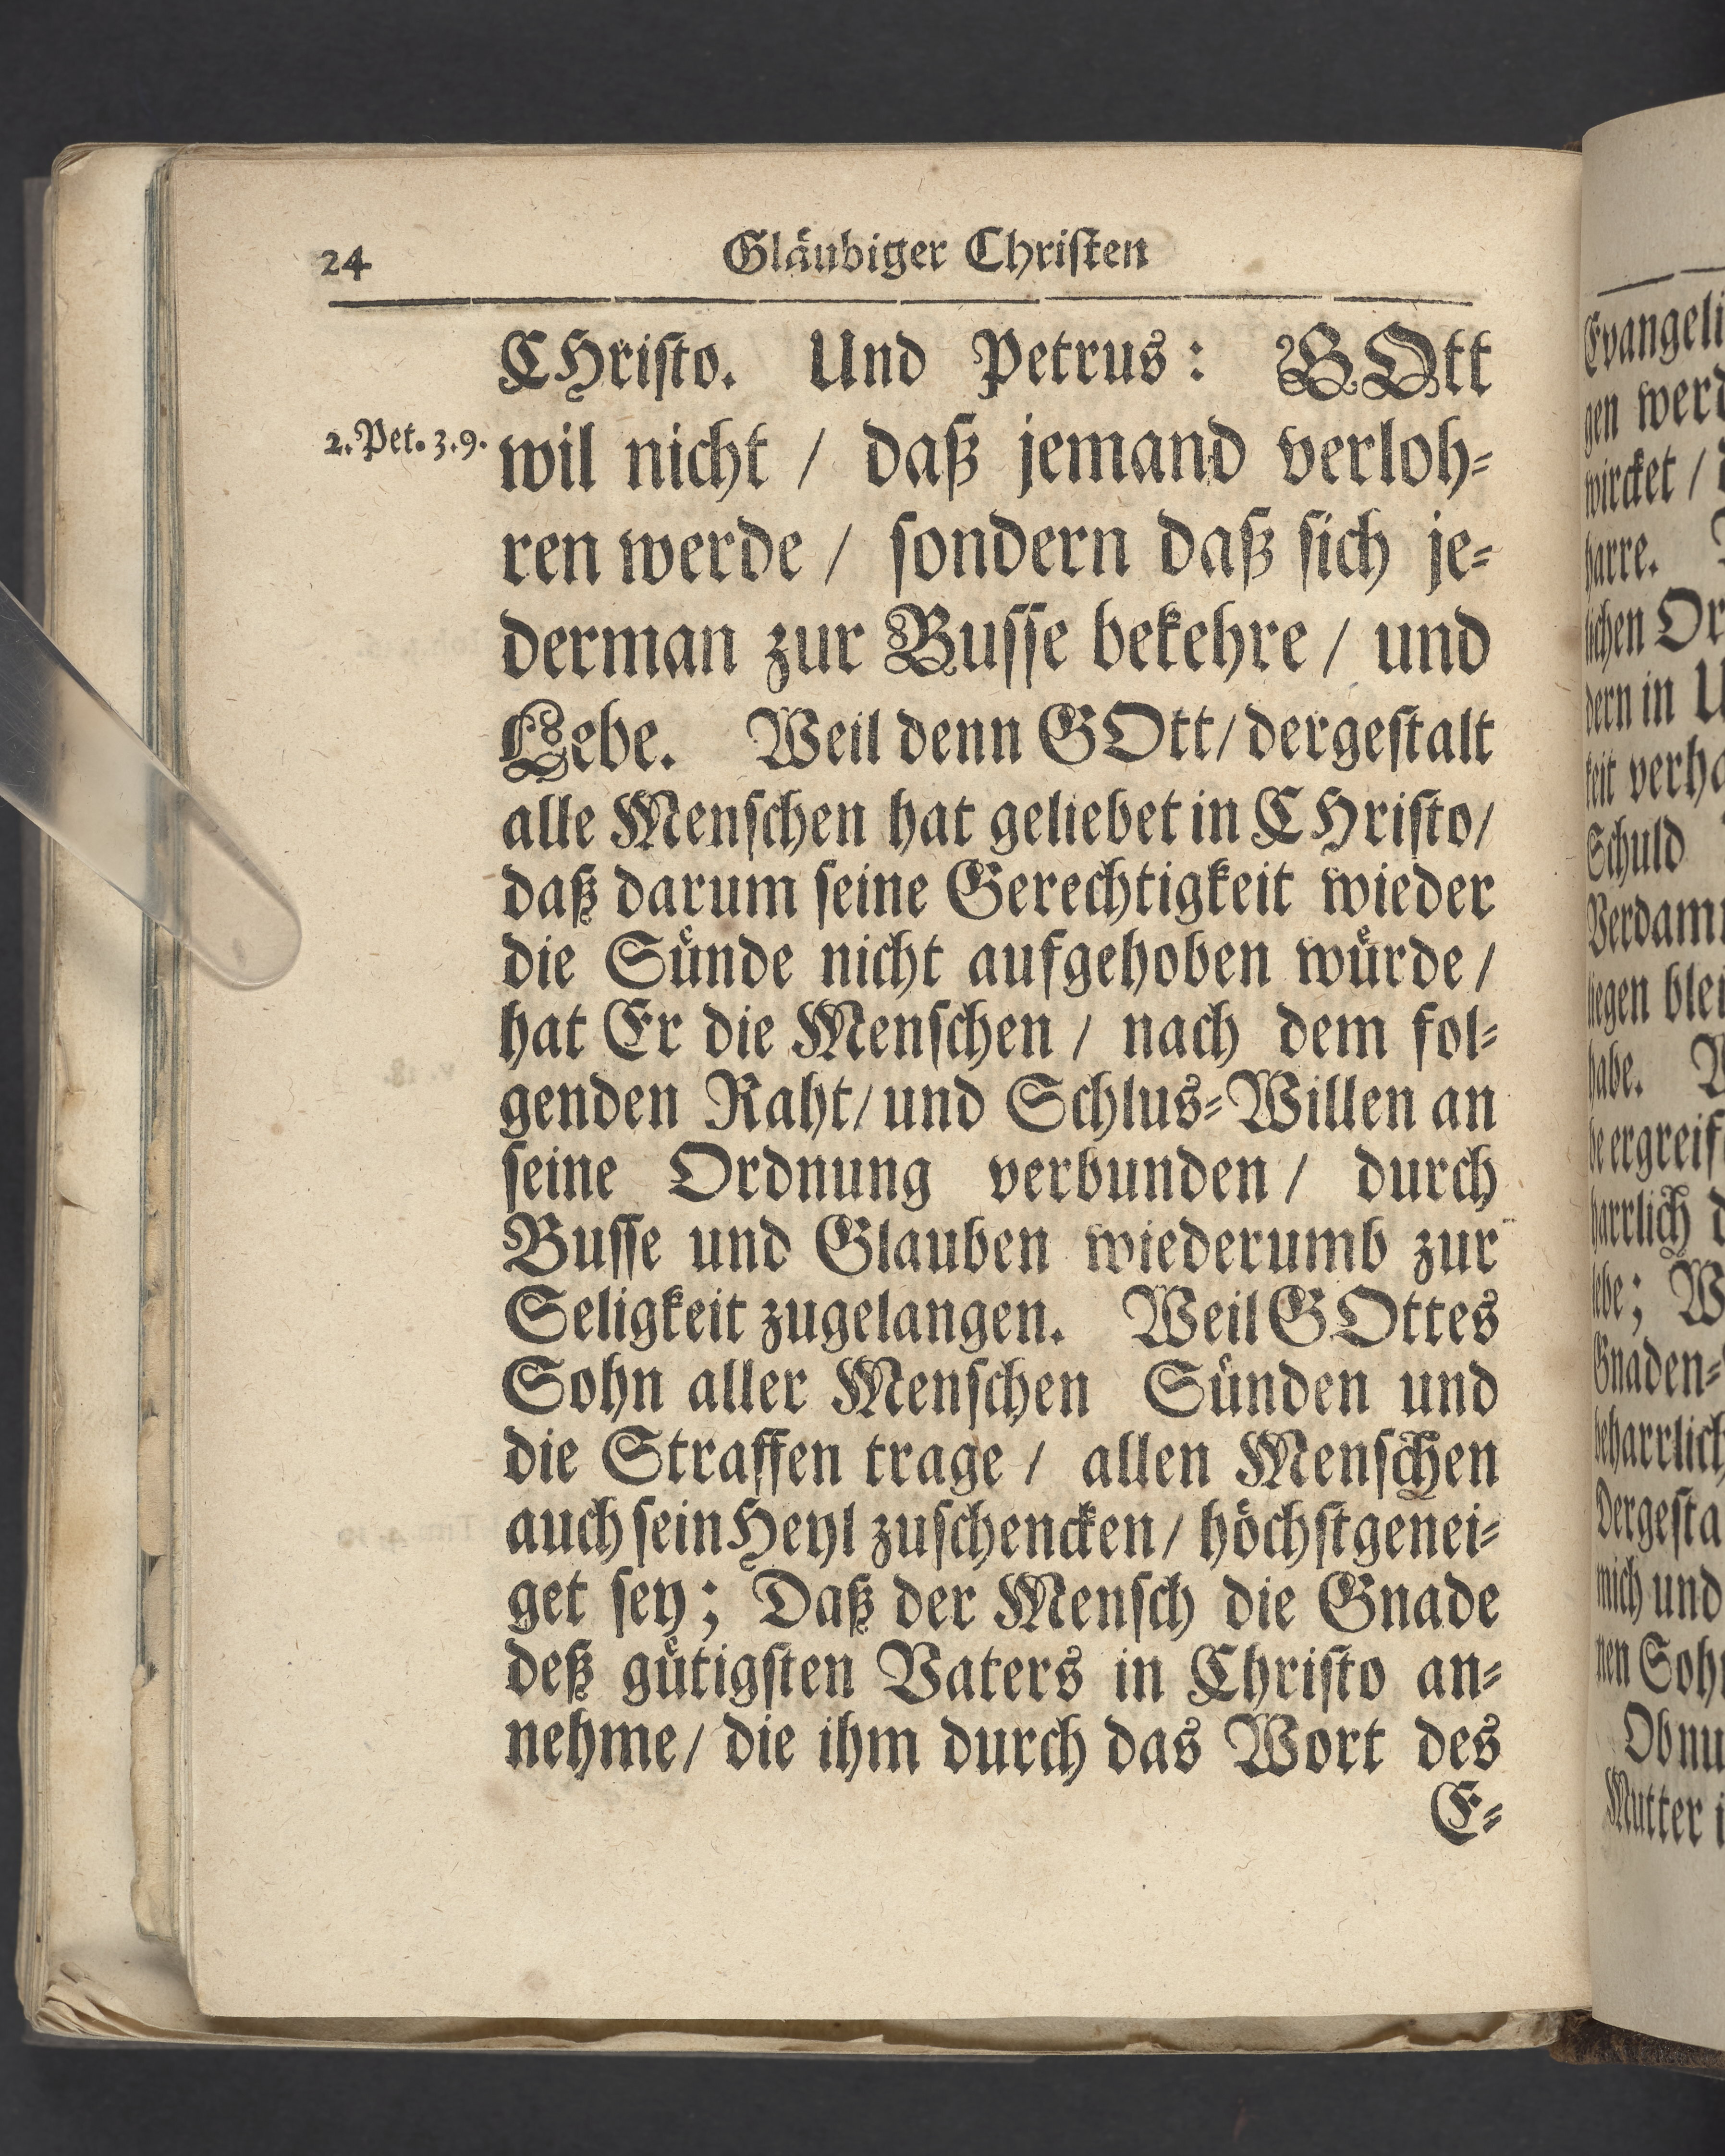 24 Gläubiger Christen
CHristo. Und Petrus: GOtt
2. Pet. 3. 9.
wil nicht / daß jemand verloh-
ren werde / sondern daß sich je-
derman zur Busse bekehre / und
Lebe. Weil denn GOtt / dergestalt
alle Menschen hat geliebet in CHristo /
daß darum seine Gerechtigkeit wieder
die Sünde nicht aufgehoben würde /
hat Er die Menschen / nach dem fol-
genden Raht / und Schlus-Willen an
seine Ordnung verbunden / durch
Busse und Glauben wiederumb zur
Seligkeit zugelangen. Weil GOttes
Sohn aller Menschen Sünden und
die Straffen trage / allen Menschen
auch sein Heyl zuschencken / höchstgenei-
get sey; Daß der Mensch die Gnade
deß gütigsten Vaters in Christo an-
nehme / die ihm durch das Wort des
E-
Evangeli
gen werd
wircket /
harre.
lichen Or
dern in U
keit verha
Schuld
Verdam
liegen blei
habe.
be ergreif
harrlich d
lebe; W
Gnaden-
beharrlich
Dergesta
mich und
nen Soh
Ob nu
Mutter i